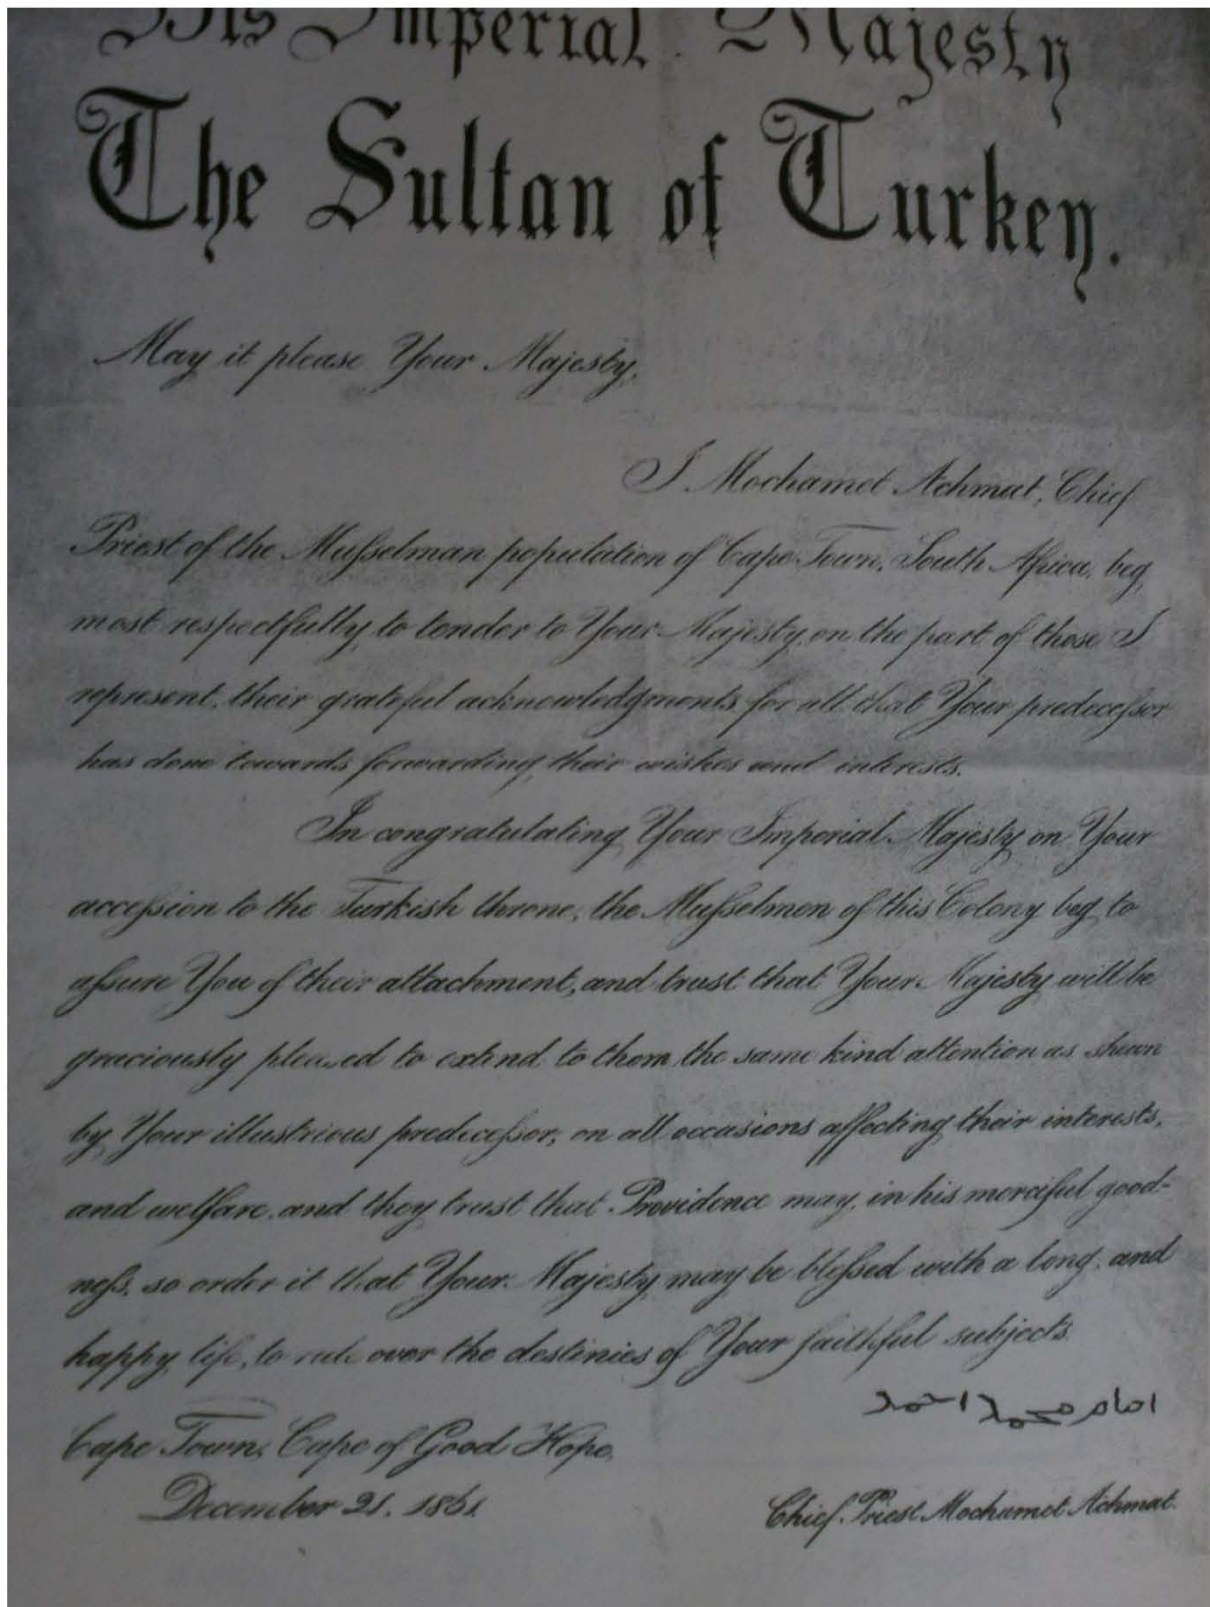 His Imperial Majesty
The Sultan of Turkey.
May it please Your Majesty,
I Mochamet Achmat, Chief
Priest of the Musselman population of Cape Town, South Africa, beg
most respectfully to tender to Your Majesty, on the part of those I
represent, their grateful acknowledgments for all that Your predecessor
has done towards forwarding their wishes and interests.
In congratulating Your Imperial Majesty on Your
accession to the Turkish throne, the Musselmen of this Colony beg to
assure You of their attachment, and trust that Your Majesty will be
graciously pleased to extend to them the same kind attention as shewn
by Your illustrious predecessor, on all occasions affecting their interests,
and welfare, and they trust that Providence may, in his merciful good-
ness, so order it that Your Majesty may be blessed with a long, and
happy life, to rule over the destinies of Your faithful subjects.
امام محمد احمد
Cape Town, Cape of Good Hope,
December 21. 1861
Chief Priest Mochamet Achmat.